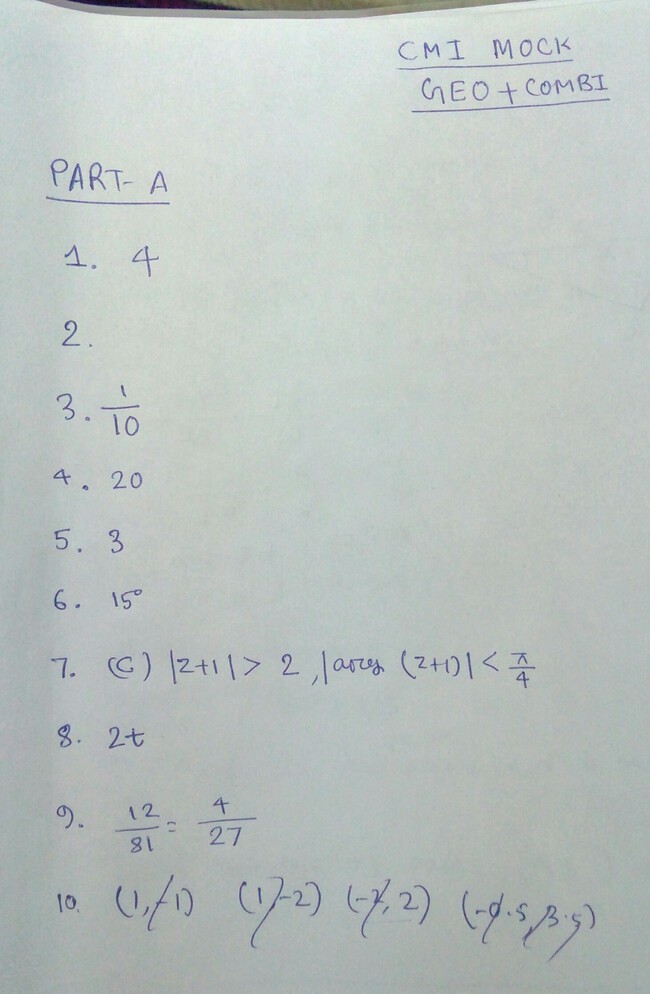 CMI MOCK
GEO + COMBI
PART- A
1. 4
2.
3. 1/10
4. 20
5. 3
6. 15°
7. (C) |z+1| > 2, |arg (z+1)| < π/4
8. 2t
9. 12/81 = 4/27
10. (1, -1) (1, -2) (-2, 2) (-0.5, 3.5)